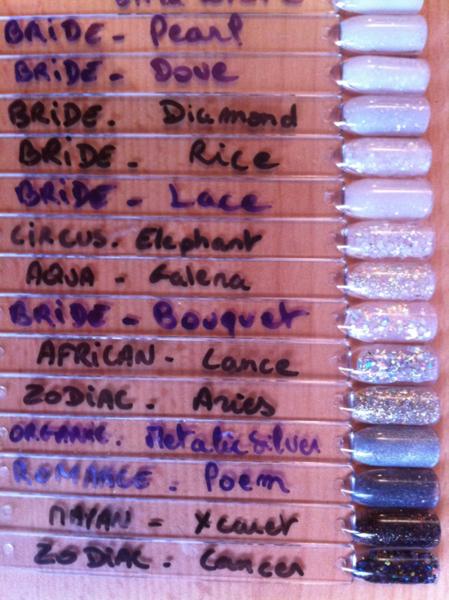 BRIDE - Pearl
BRIDE - Dove
BRIDE. Diamond
BRIDE - Rice
BRIDE - Lace
CIRCUS. Elephant
AQUA - Galena
BRIDE - Bouquet
AFRICAN - Lance
ZODIAC. Aries
ORGANIC. Metalic Silver
ROMANCE. Poem
MAYAN - Xcaret
ZODIAC. Cancer